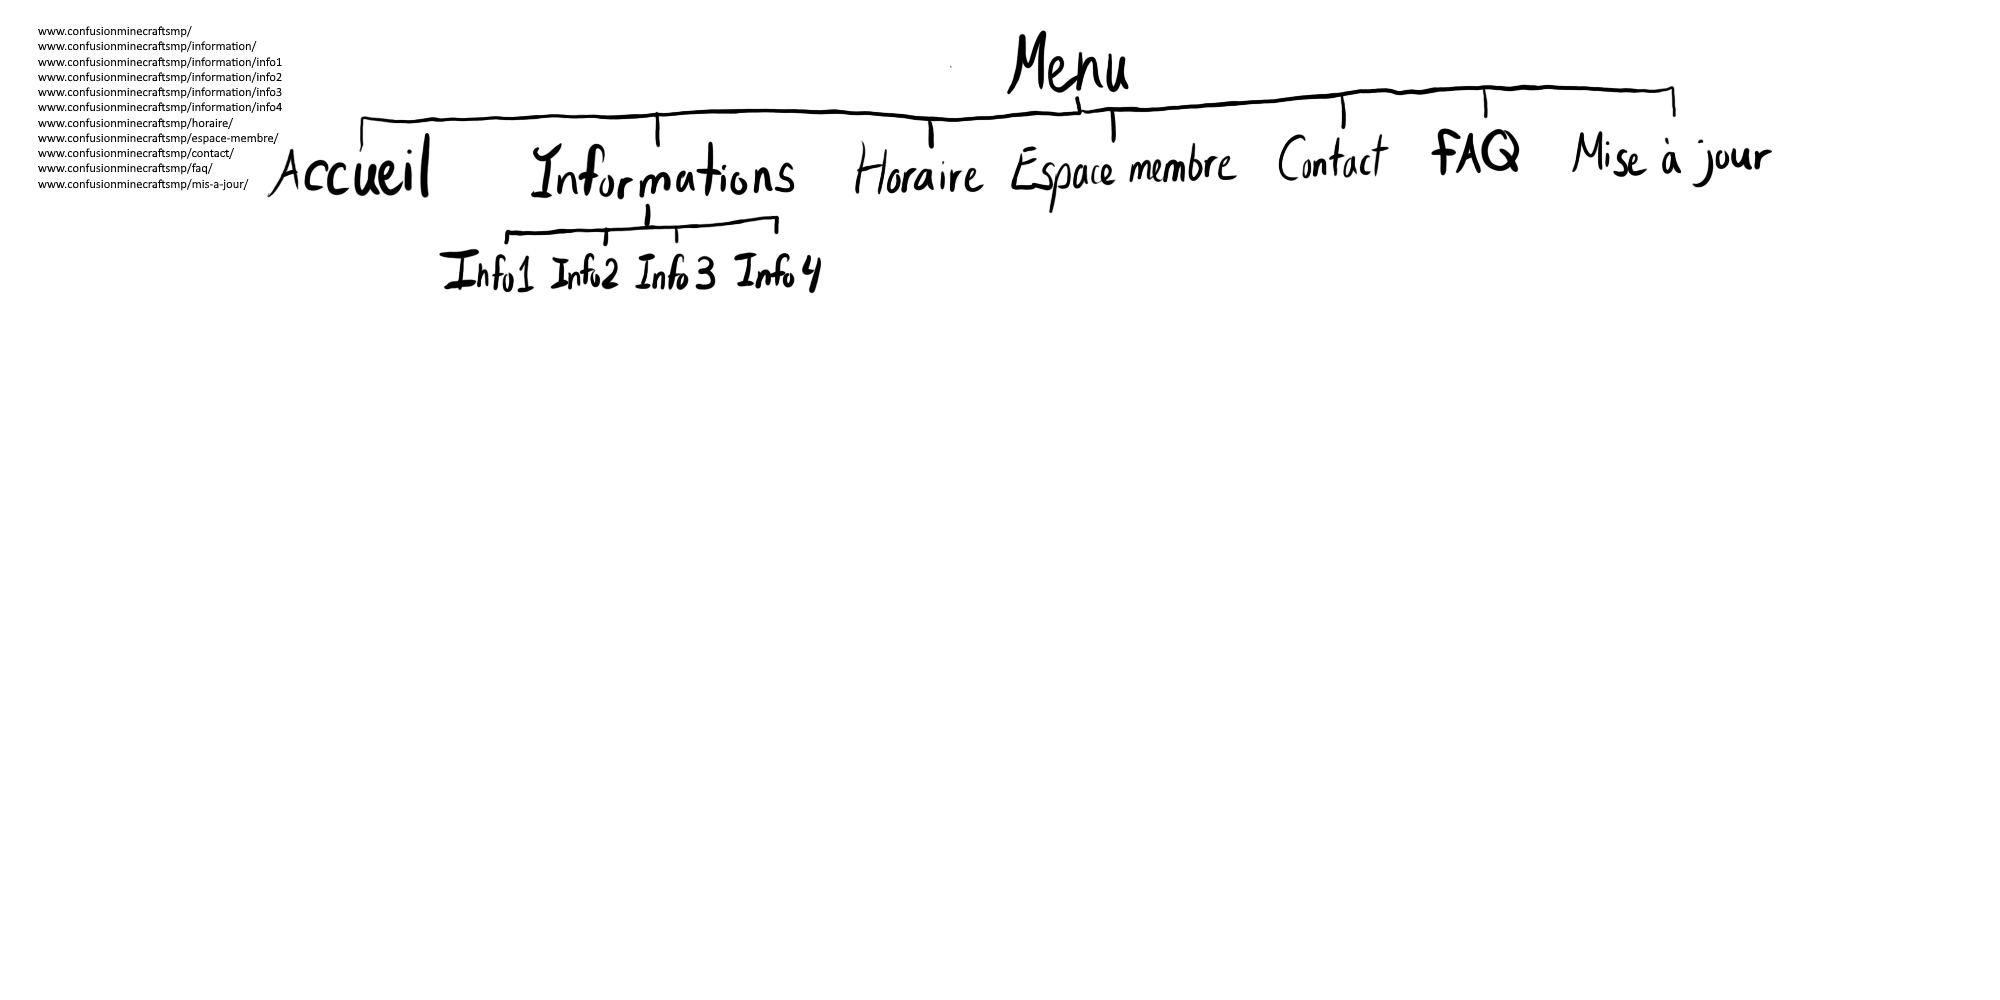 www.confusionminecraftsmp/
www.confusionminecraftsmp/information/
www.confusionminecraftsmp/information/info1
www.confusionminecraftsmp/information/info2
www.confusionminecraftsmp/information/info3
www.confusionminecraftsmp/information/info4
www.confusionminecraftsmp/horaire/
www.confusionminecraftsmp/espace-membre/
www.confusionminecraftsmp/contact/
www.confusionminecraftsmp/faq/
www.confusionminecraftsmp/mis-a-jour/
Menu
Accueil Informations Horaire Espace membre Contact FAQ Mise à jour
Info1 Info2 Info3 Info4